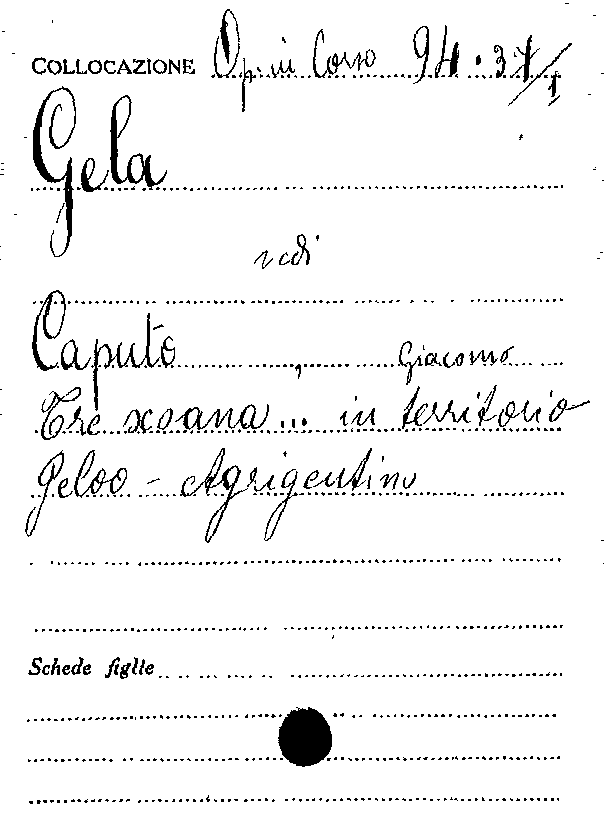 COLLOCAZIONE Op. in Corso 94.37/1
Gela
vedi
Caputo, Giacomo
Tre xoana ... in territorio
Geloo - Agrigentino
Schede figlie